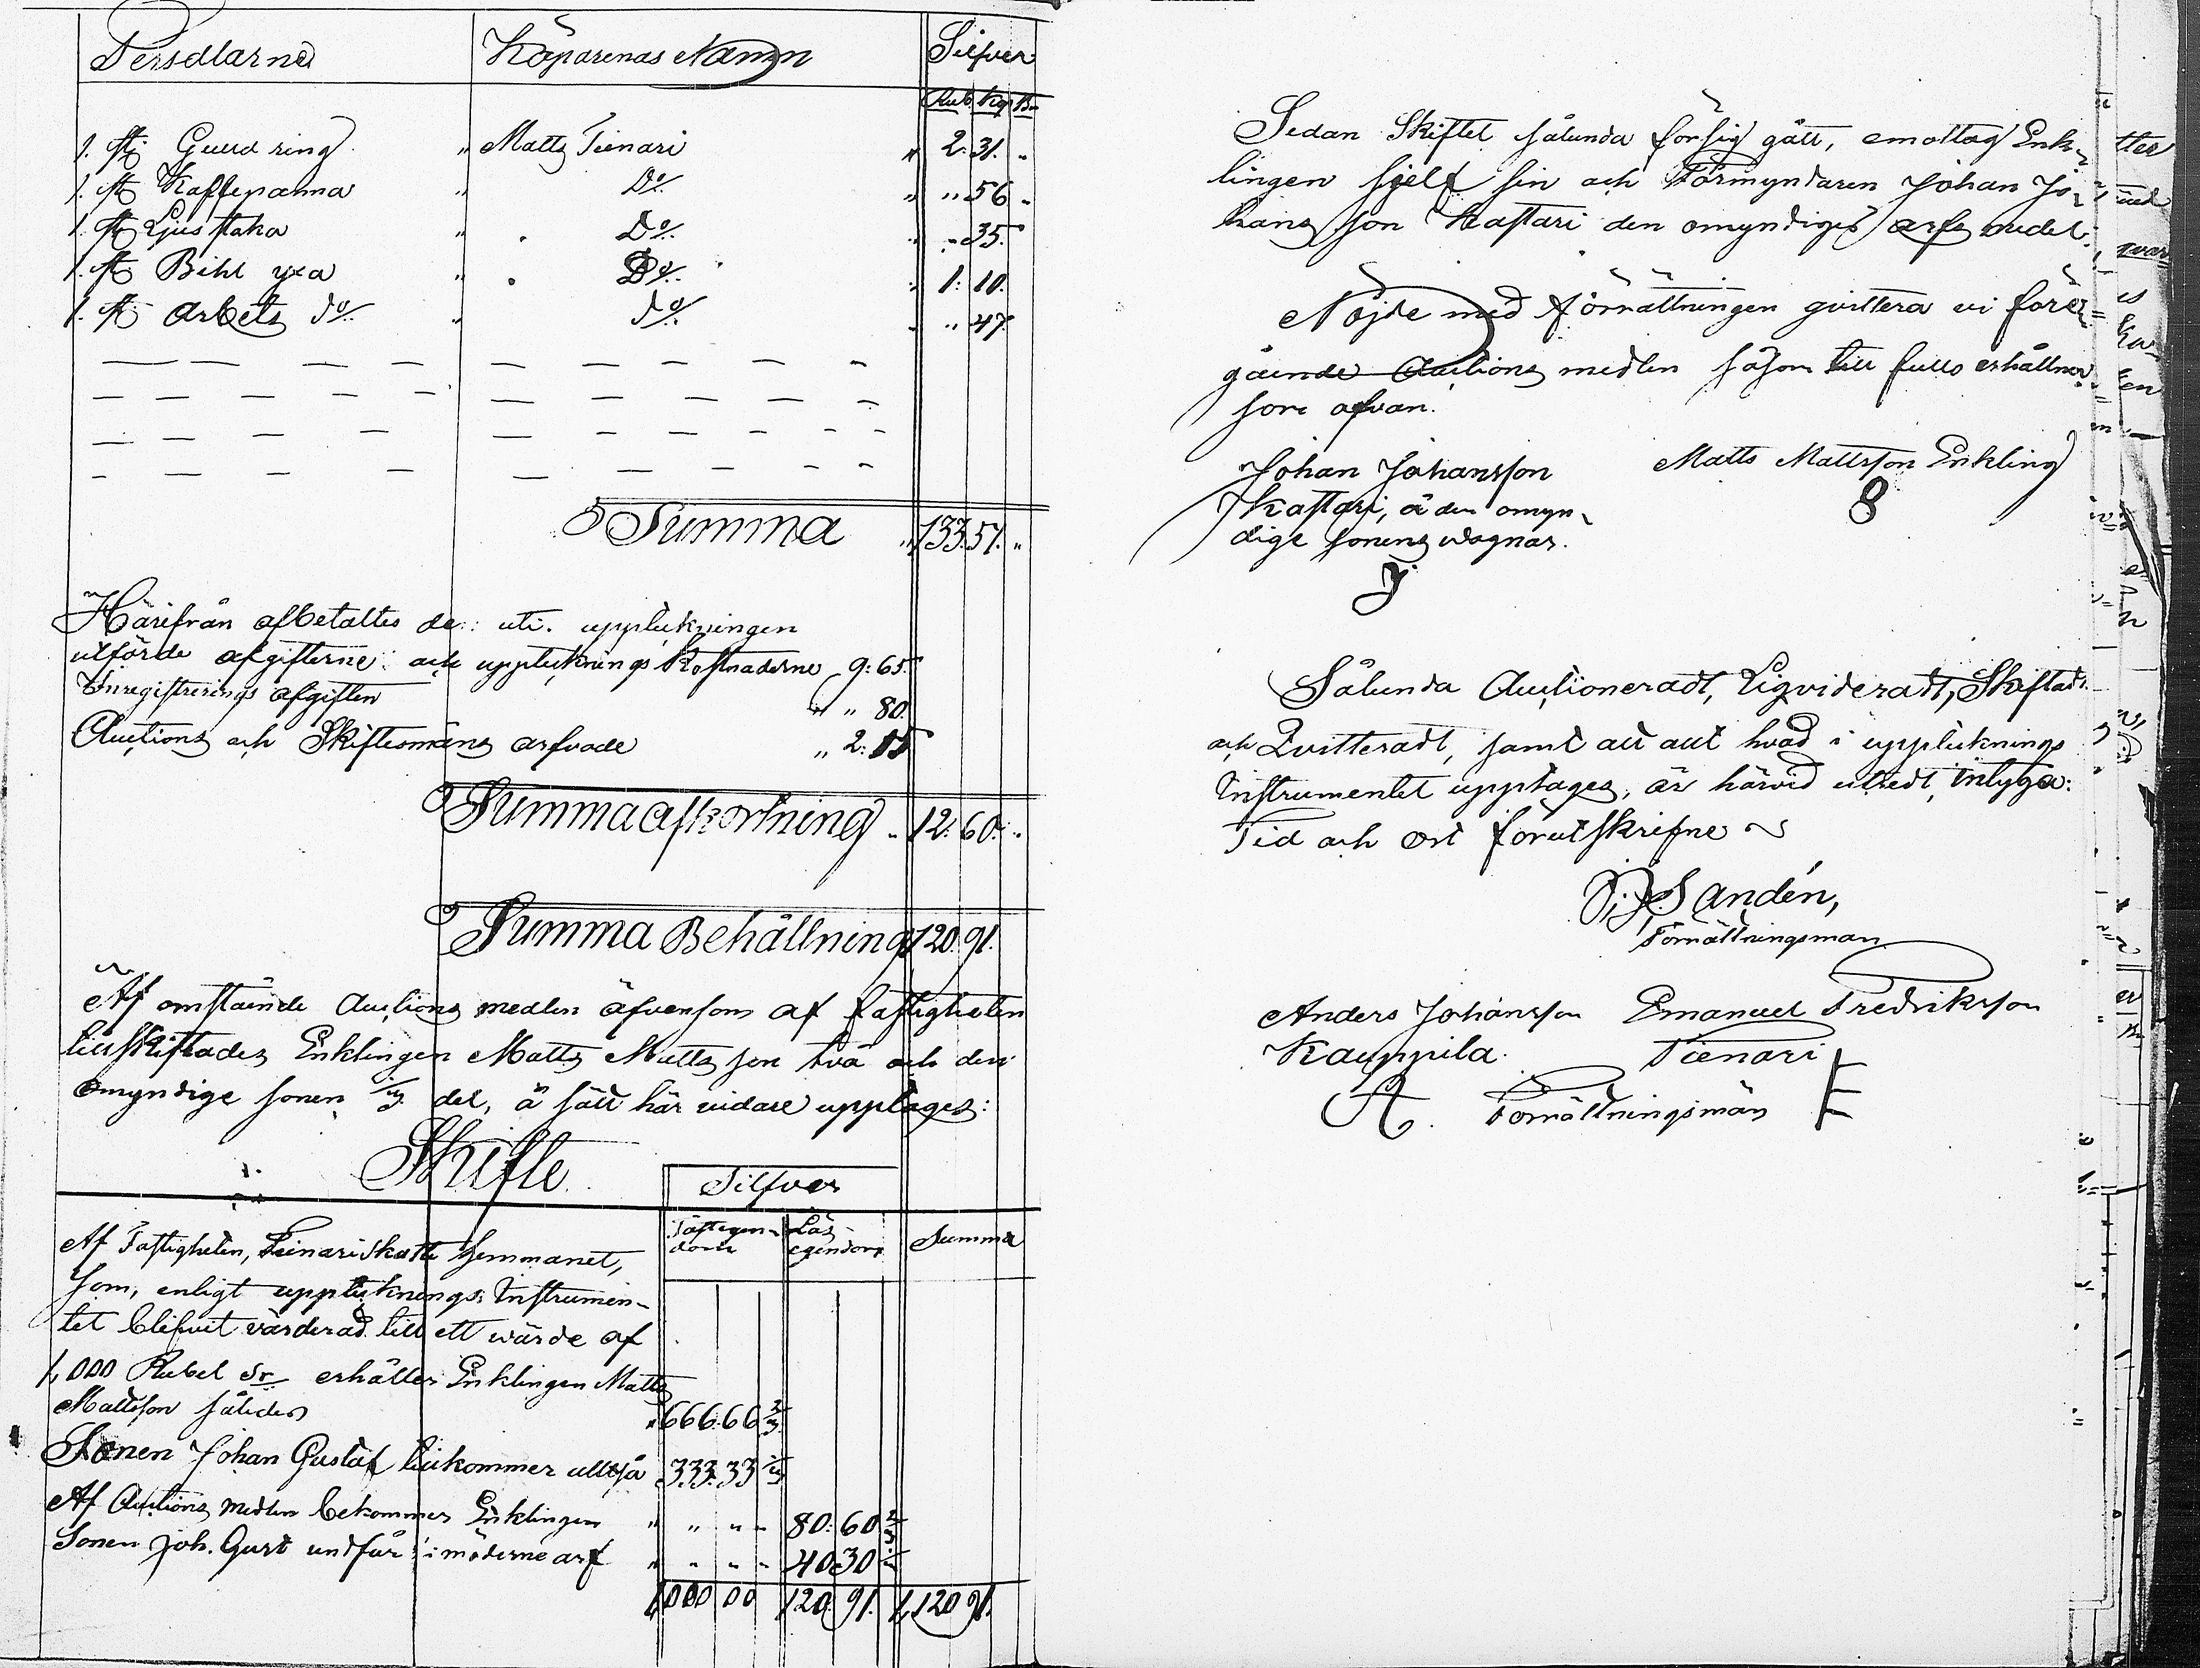 Persedlarne Köparenas Namn Silfver
Rub. Kop Br
1. st Guld ring " Matts Tienari " 2. 31. "
1. st Kaffepanna " Do/. " " 56 "
1. st Ljus staka " Do/. " " 35.
1. st Bihl yxa " Do/. " 1: 10.
1. st Arbets do/. " do/. " " 47.
Summa " 133. 51. "
Härifrån afbetaltes de: uti. upptekningen
utförde afgifterne och uppteknings Kostnaderne 9: 65.
Inregistrerings afgiften " " 80.
Auctions och Skiftesmäns arfvode " 2: 15
Summa afkortning " 12. 60. "
Summa Behållning 120. 91.
Af omstående Auctions medlen äfvensom af fastigheten
tillskiftades Enklingen Matts Matts son två och den
omyndige sonen 1/3 del, å sätt här vidare upptages:
Skifte
Silfver
Fastegen- Lös-
dom egendom Summa
Af Fastigheten, Teinari Skatte hemmanet,
som, enligt uppteknings Instrumen-
tet blifvit värderad till ett värde af
1,000 Rubel Sr erhåller Enklingen Matts
Mattsson således " 666. 66 2/3
Sonen Johan Gustaf tillkommer alltså 333. 33 1/3
Af Auctions medlen bekommer Enklingen " " " " 80: 60 2/3
Sonen Joh. Gust undfår i möderne arf " " " " 40. 30 1/3
1,000 00 120. 91. 1,120 91.
Sedan Skiftet sålunda försig gått, emottog Enk-
lingen sjelf sin och Förmyndaren Johan Jo-
hans son Kastari den omyndiges arfs andel.
Nöjde med förrättningen qvittera vi före-
gående Auctions medlen såsom till fullo erhållne
som ofvan.
Johan Johansson Matts Mattsson Enkling
Kastari, å den omyn-
dige sonens vägnar.
Sålunda Auctioneradt, Liqvideradt, Skiftadt
och Qvitteradt, samt att allt hvad i uppteknings
Instrumentet upptages, är härvid utredt, intyga:
Tid och Ort förutskrifne
Sandén,
Förrättningsman
Anders Johansson Emanuel Fredriksson
Kauppila. Tienari
Förrättningsmän